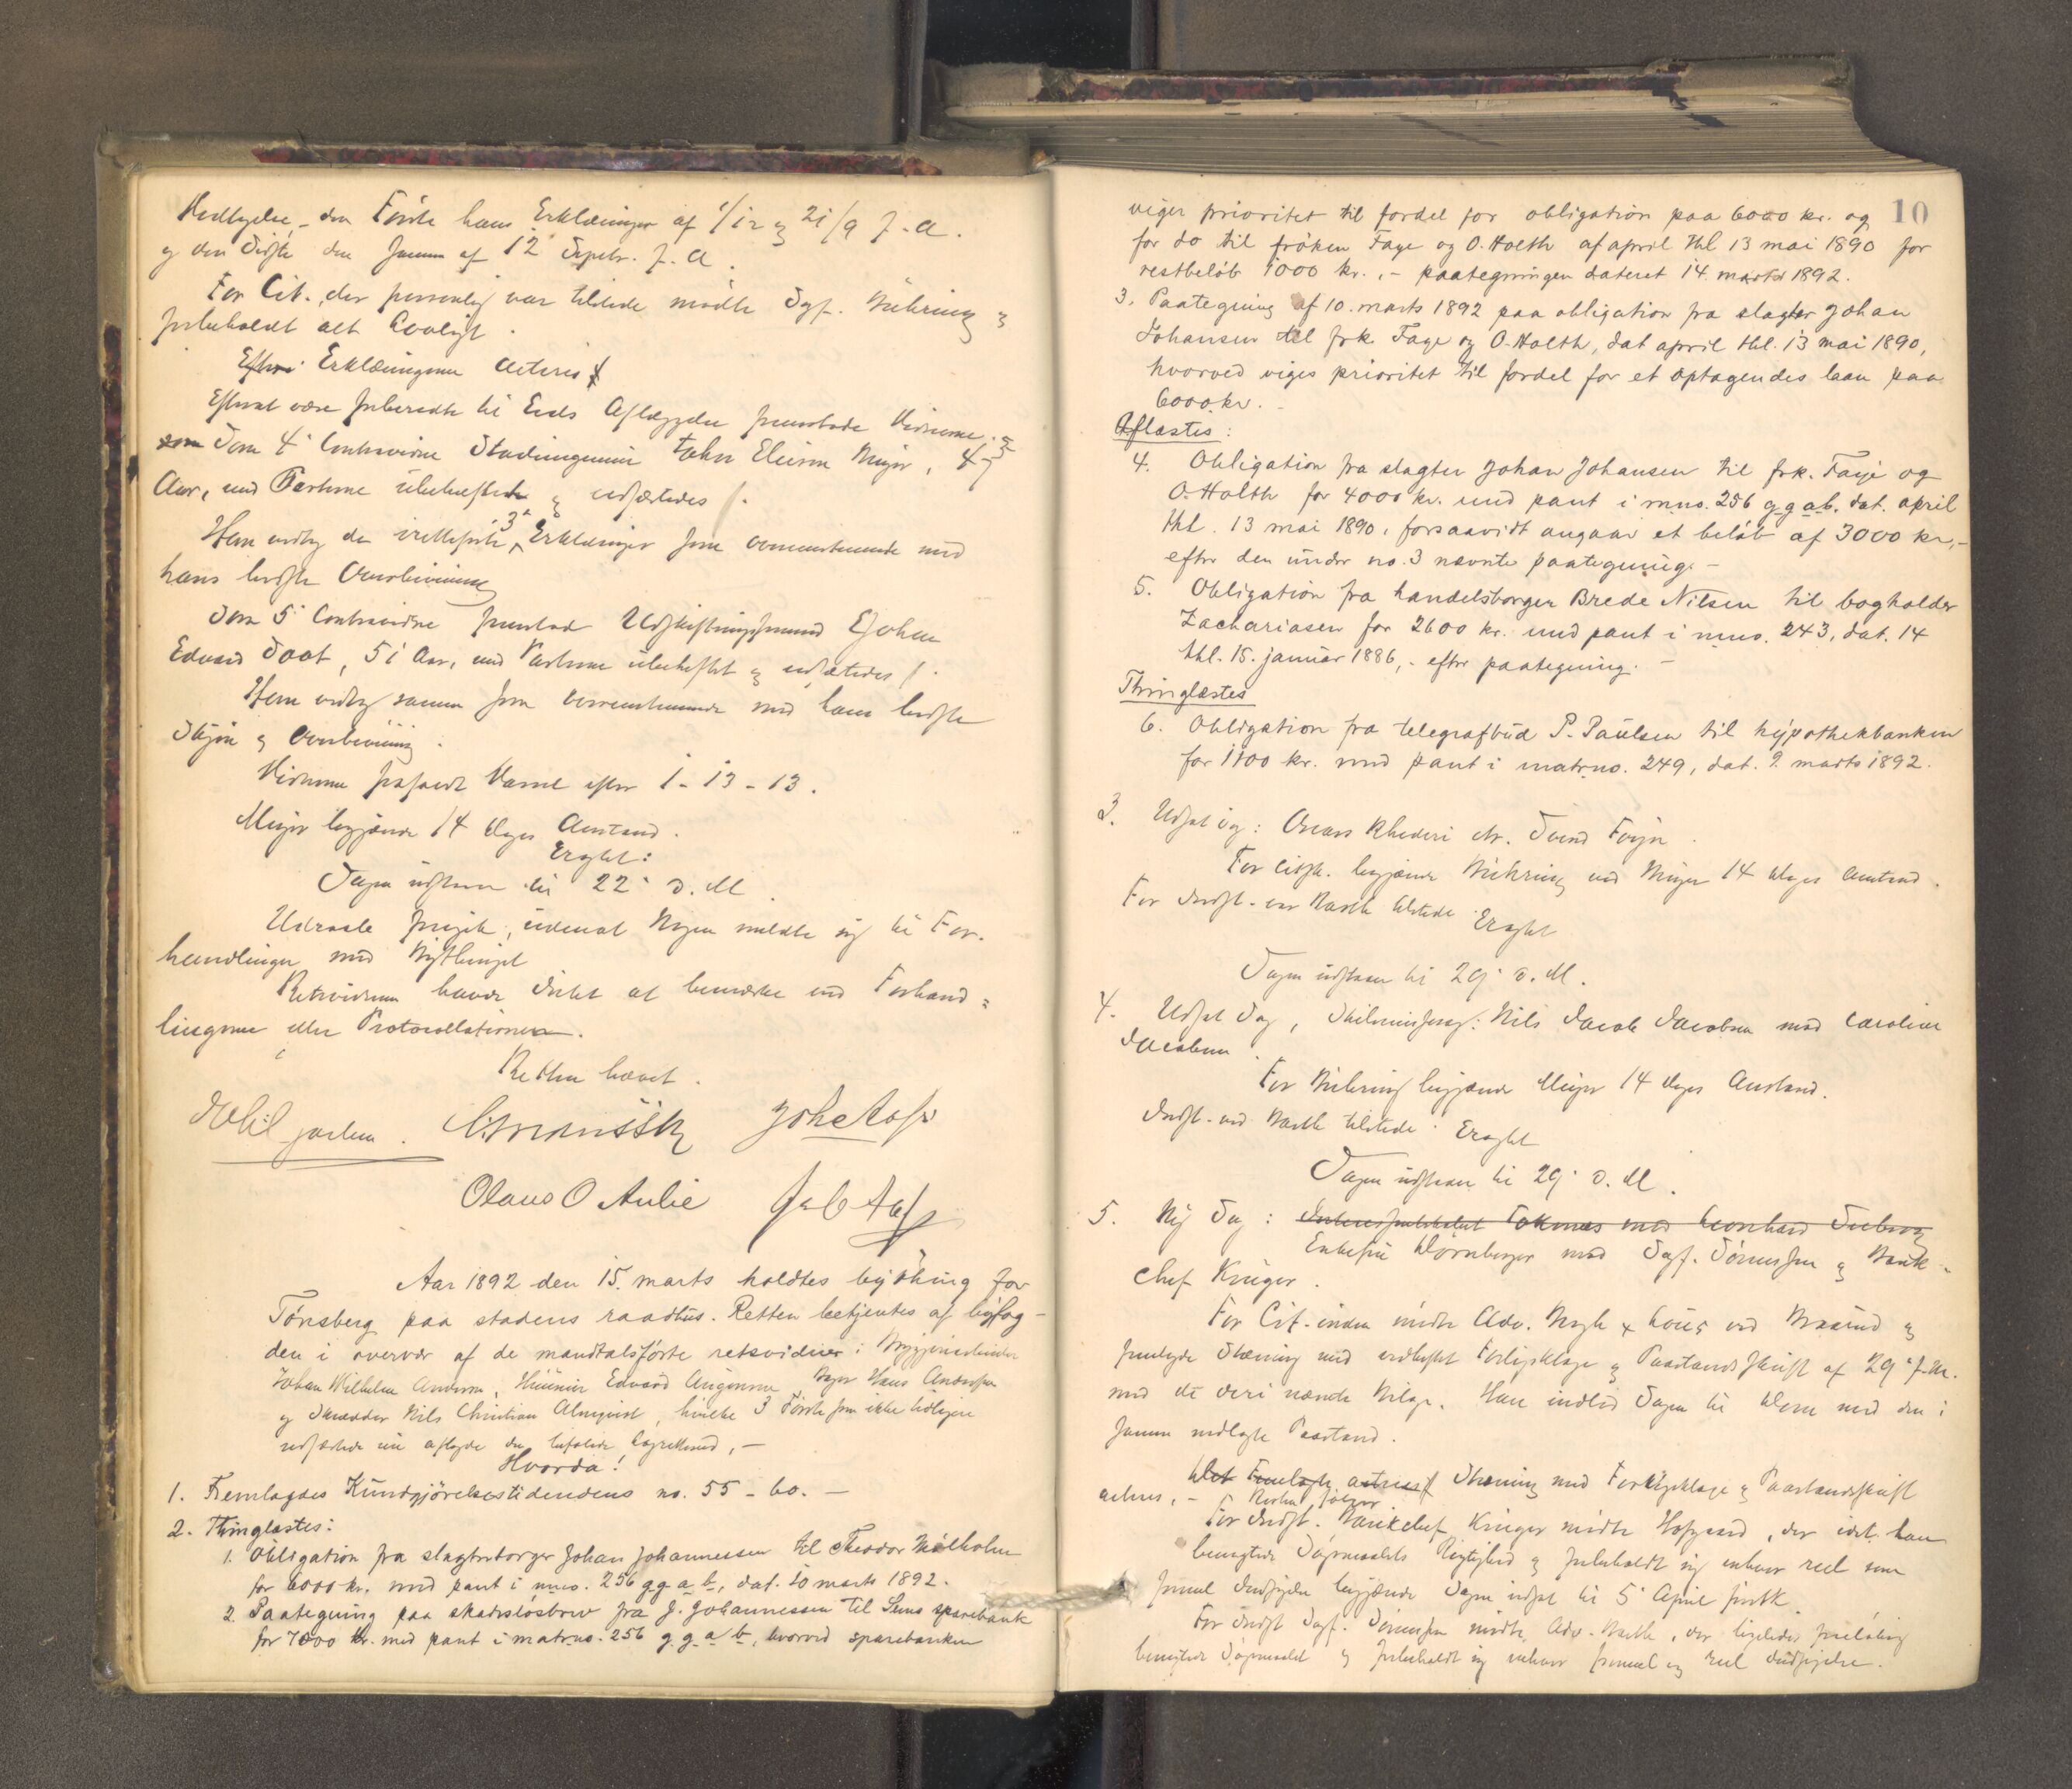 Vedtagelse, den Første hans Erklæringer af 1/12 og 21/9 f. A.
og den Sidste den Samme af 12 Septbr. f. A.
For Cit. der personlig var tilstede mødte Sgf. Bühring og
forbeholdt alt Lovligt.
Erklæringerne acteres
Efterat være forberedte til Eeds Aflæggelse fremstode Vidnerne
Som 4' Contravidne Stadsingeniør
Aar, med Parterne ubeslægtede og edfæstedes
Han vedtog de irettelagte 3 Erklæringer som overensstemmende med
hans bedste Overbevisning
Som 5' Contravidne fremstod Udskiftningsformand Johan
Edvard Foot, 51 Aar, med Parterne ubeslægtet og edfæstedes
Han vedtog samme som overensstemmende med hans bedste
Skjøn og Overbevisning.
Vidnerne frafaldt Varsel efter 1-13-13.
Meyer begjærede 14 Dages Anstand.
Eragtet:
Sagen udstaar til 22' d. M.
Udraab fremgik, uden at Nogen meldte sig til For-
handlinger med Bythinget
Retsvidnerne havde Intet at bemærke ved Forhand-
lingerne eller Protocollationen.
Retten hævet.
Olaus O Aulie
Aar 1892 den 15. marts holdtes bything for
Tønsberg paa stadens raadhus. Retten betjentes af byfog-
den i overvær af de mandtalsførte retsvidner:
Johan Wilhelm Andersen, Edvard Hans Andersen
og Skrædder Nils Christian Almquist, hvilke 3 Første som ikke tidligere
edfæstede nu aflagde den befalede Lagretteseed, -
Hvorda!
1. Fremlagdes Kundgjørelsestidendens no. 55 - 60. -
2. Thinglæstes:
1. Obligation fra slagterborger Johan Johannessen til Theodor Mølholm
for 6000 kr. med pant i mno. 256 g.g a b, dat. 10 marts 1892.
2. Paategning paa skadesløsbrev fra J. Johannessen til Sems sparebank
for 7000 kr. med pant i matr.no. 256 g.g a b, hvorved sparebanken
10
viger prioritet til fordel for obligation paa 6000 kr. og
for do til frøken Faye og O. Holth af april thl 13 mai 1890 for
restbeløb 1000 kr., - paategningen dateret 14 marts 1892.
3. Paategning af 10. marts 1892 paa obligation fra slagter Johan
Johansen til frk. Faye og O. Holth, dat april thl. 13 mai 1890,
hvorved viges prioritet til fordel for et optagendes laan paa
6000 kr. -
Aflæstes:
4. Obligation fra slagter Johan Johansen til frk. Faye og
O. Holth for 4000 kr. med pant i mno. 256 g g a b. dat. april
thl. 13 mai 1890, forsaavidt angaar et beløb af 3000 kr, -
efter den under no. 3 nævnte paategning. -
5. Obligation fra handelsborger Brede Nilsen til bogholder
Zachariasen for 2600 kr. med pant i mno. 243, dat. 14
thl. 15. januar 1886, - efter paategning. -
Thinglæstes
6. Obligation fra telegrafbud P. Paulsen til hypothekbanken
for 1100 kr. med pant i matrno. 249, dat. 9. marts 1892.
3. Udsat Sag: Oscars Rhederi ctr. Svend Foyn.
For Citst. begjærede Bühring ved Meyer 14 Dages Anstand.
For Indst. var Barth tilstede. Eragtet
Sagen udstaar til 29' d. M.
4. Udsat Sag, Skilsmissesag: Nils Jacob Jacobsen mod Caroline
Jacobsen.
For Bühring begjærede Meyer 14 Dages Anstand.
Indst. ved Barth tilstede. Eragtet
Sagen udstaar til 29' d. M.
5. Ny Sag:
Enkefru Dörnberger mod Sgf. Sørenssen og Bank-
chef Krüger.
For Cit.inden mødte Adv. Bugge & Lous ved Braarud og
fremlagde Stævning med vedheftet Forligsklage og Paastandsskrift af 29' f. M.
med de deri nævnte Bilage. Han indlod Sagen til Dom med den i
samme nedlagte Paastand.
Det Fremlagte acteres Stævning med Forligsklage og Paastandsskrift
acteres, -
For Indst. Bankchef Krüger mødte Hofgaard, der idet han
benegtede Søgsmaalets Rigtighed og forbeholdt sig enhver reel som
formel Indsigelse begjærede Sagen udsat til 5' April førstk.
For Indst Sgf. Sørenssen mødte Adv. Barth, der ligeledes foreløbig
benegtede Søgsmaalet og forbeholdt sig enhver formel og reel Indsigelse.